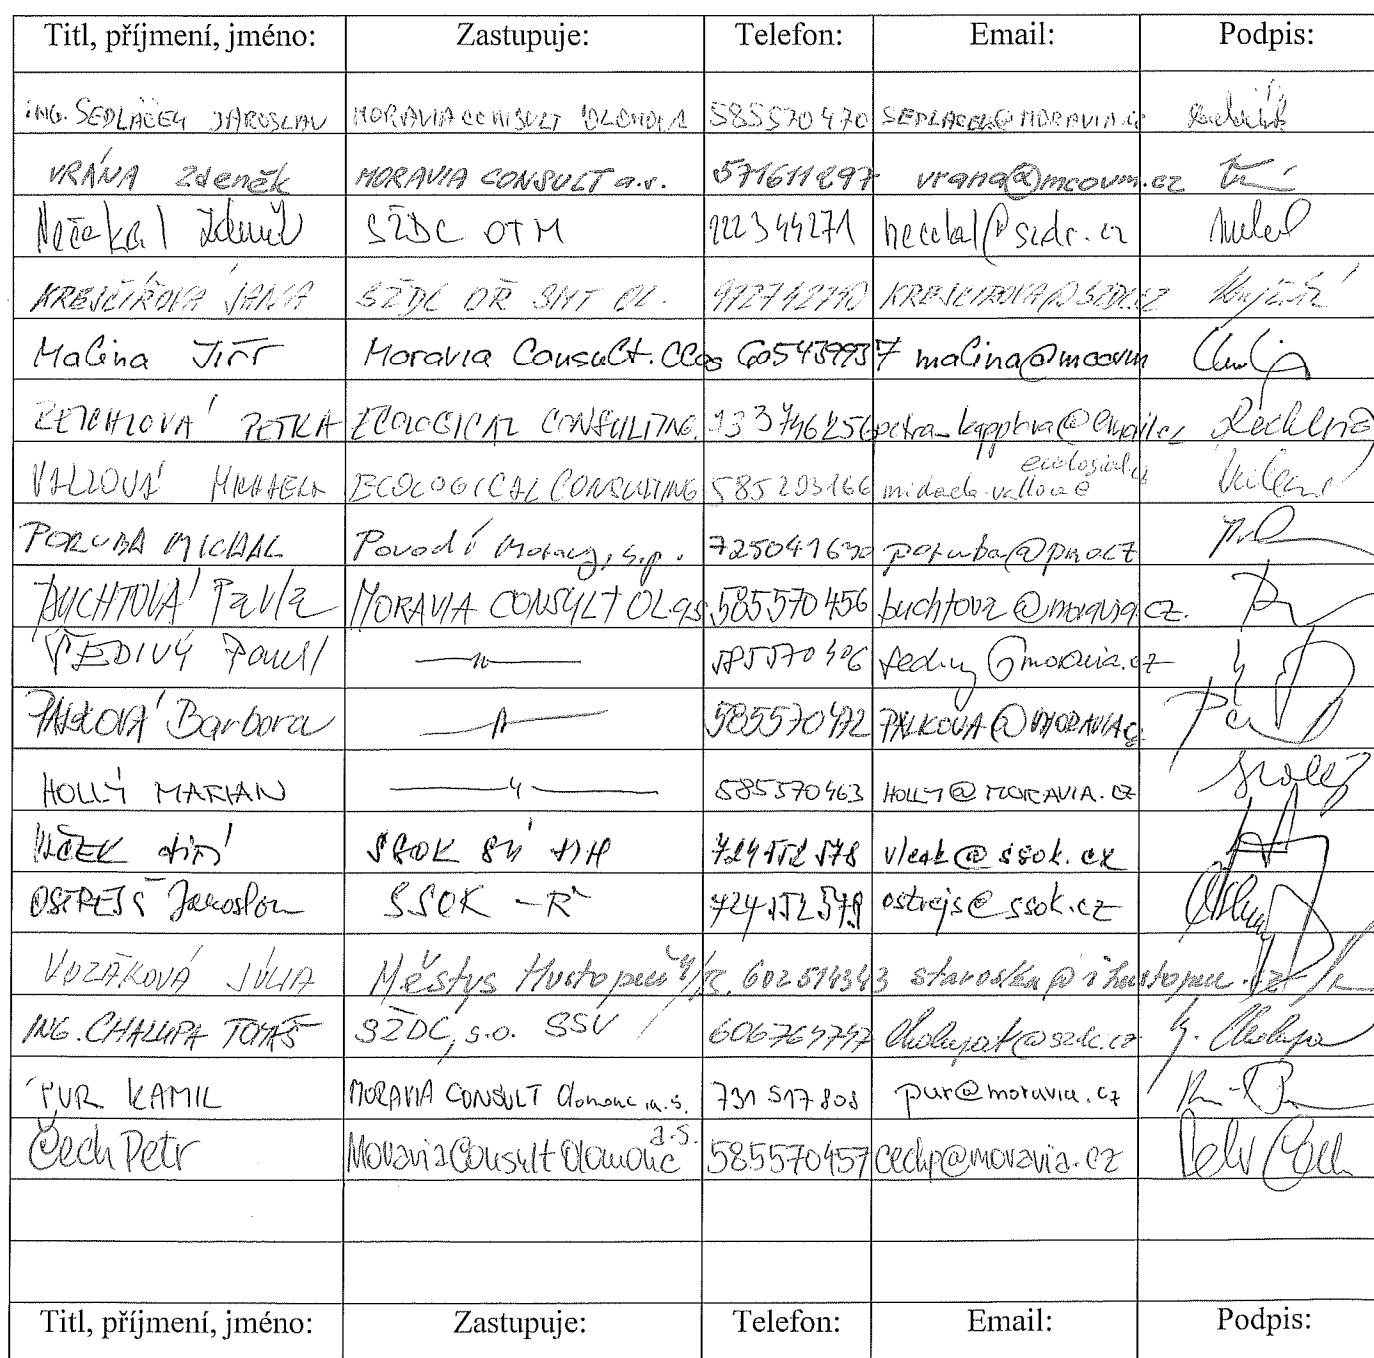 Titl, příjmení, jméno: Zastupuje: Telefon: Email: Podpis:
ING. SEDLÁČEK JAROSLAV MORAVIA CONSULT OLOMOUC 585570470 SEDLACEK@MORAVIA.CZ
VRÁNA Zdeněk MORAVIA CONSULT a.s. 571611297 vrana@mcovm.cz
Nečekal Zdeněk SŽDC OTM 222344271 necekal@szdc.cz
KREJČÍŘOVÁ JANA SŽDC OŘ SMT OL. 972742740 KREJCIROVA@SZDC.CZ
Malina Jiří Moravia Consult. CCas 605439937 malina@mcovm
PETRA ECOLOGICAL CONSULTING. 733746256
VALLOVÁ MICHAELA ECOLOGICAL CONSULTING 585203166 ecological.cz
PORUBA MICHAL Povodí Moravy, s.p. 725041630 poruba@pmo.cz
BUCHTOVÁ Pavla MORAVIA CONSULT OL a.s. 585570456 buchtova@moravia.cz.
ŠEDIVÝ Pavel —"— 585570406 sediny@moravia.cz
PÁLKOVÁ Barbora —"— 585570472 PALKOVA@MORAVIA.CZ
HOLLÝ MARIAN —"— 585570463 HOLLY@MORAVIA.CZ
VLČEK Jiří SSOK 724152578 vlcek@ssok.cz
OSTREJŠ Jaroslav SSOK - Ř 724152579 ostrejs@ssok.cz
VOZÁKOVÁ JÚLIA Městys Hustopeče n/B. 602514343 starostka@ihustopece.cz
ING. CHALUPA TOMÁŠ SŽDC, s.o. SSV 606764747 Chalupat@szdc.cz Chalupa
PUR KAMIL MORAVIA CONSULT Olomouc a.s. 731 517 808 pur@moravia.cz
Čech Petr Moravia Consult Olomouc a.s. 585570457 cechp@moravia.cz Petr Čech
Titl, příjmení, jméno: Zastupuje: Telefon: Email: Podpis: